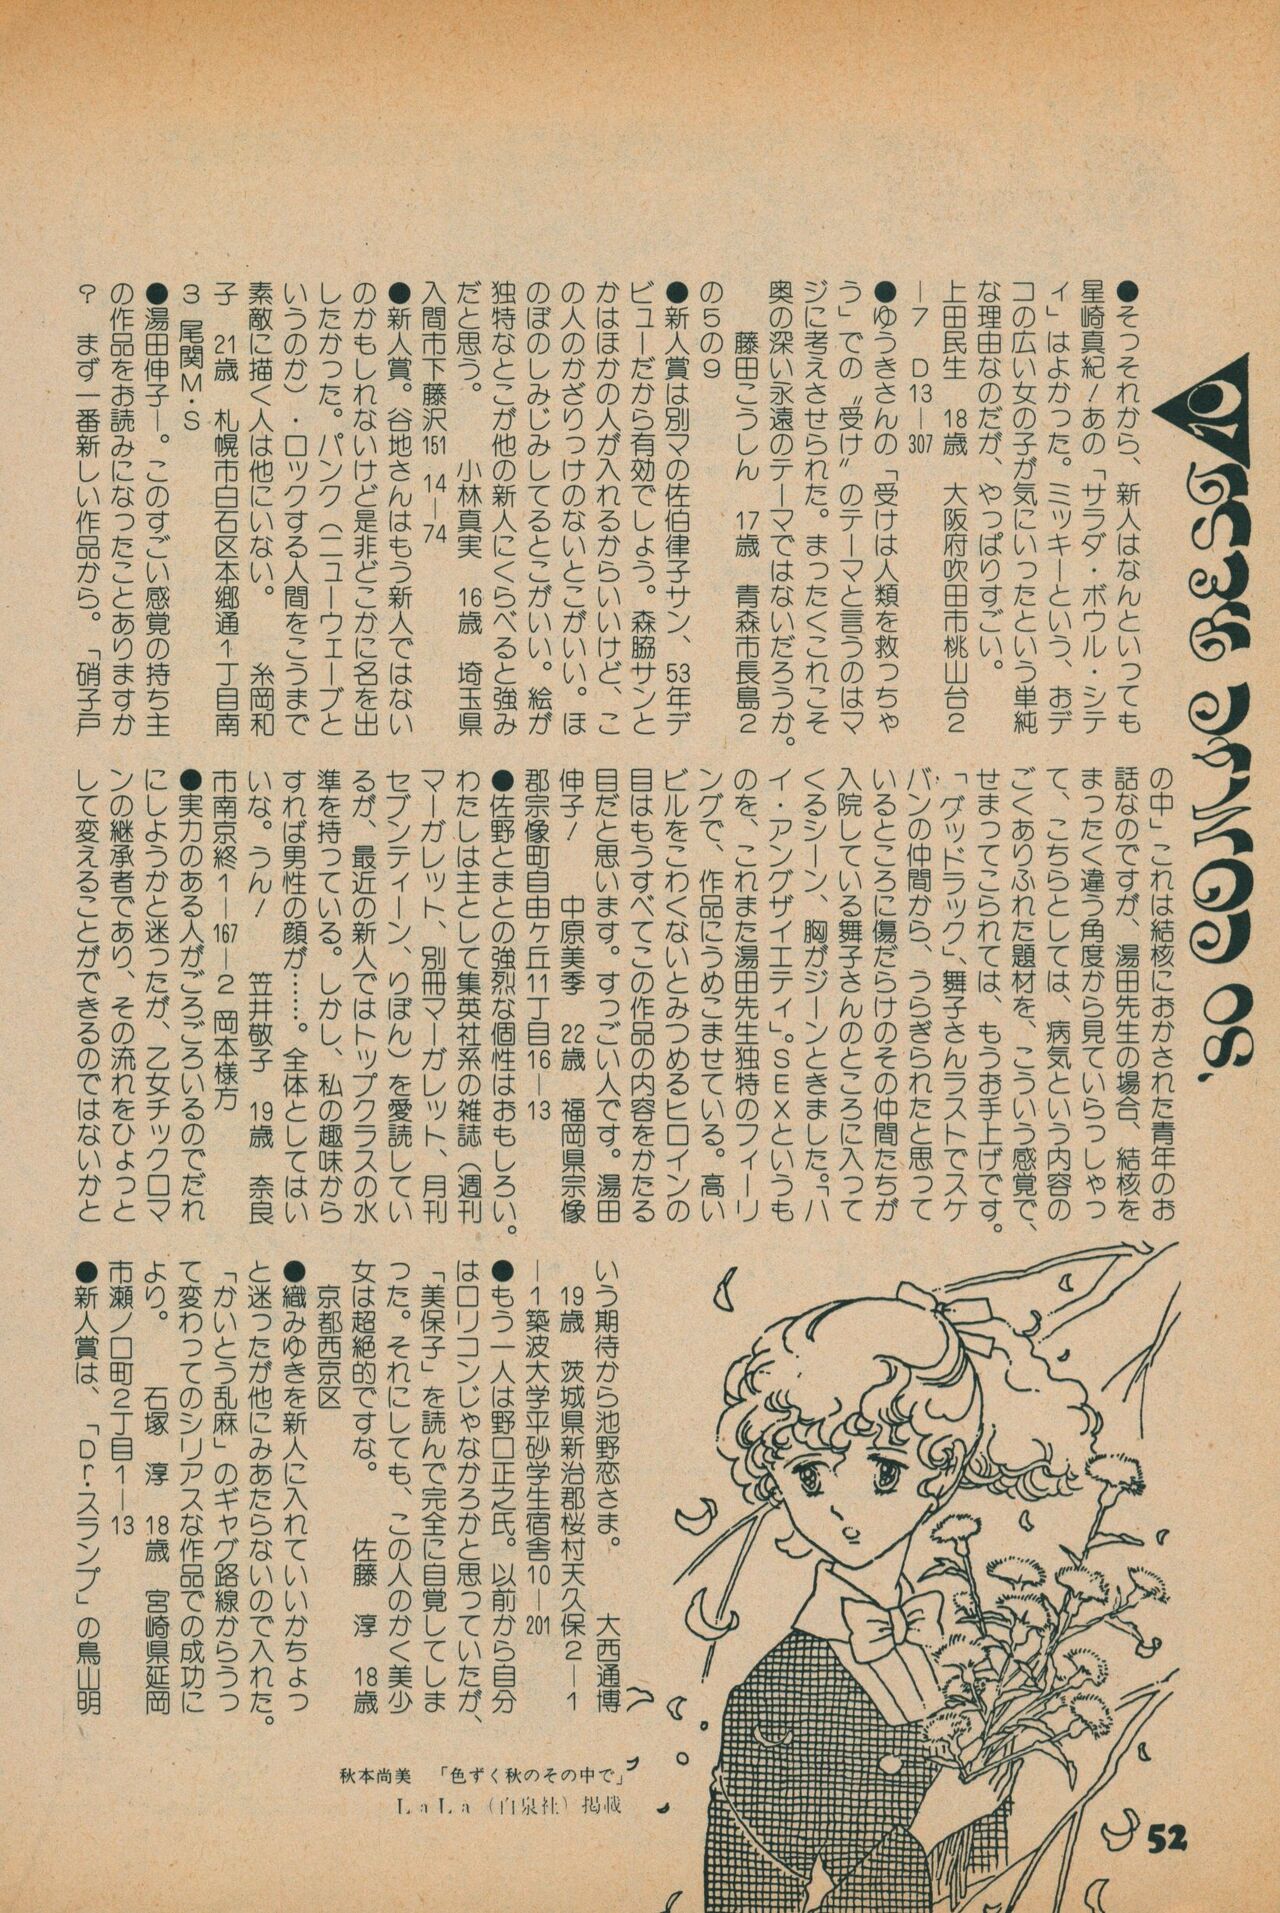 ●そっそれから、新人はなんといっても
星崎真紀！あの「サラダ・ボウル・シテ
ィ」はよかった。ミッキーという、おデ
コの広い女の子が気にいったという単純
な理由なのだが、やっぱりすごい。
上田民生　18歳　大阪府吹田市桃山台2
―7　D13―307
●ゆうきさんの「受けは人類を救っちゃ
う」での〝受け〟のテーマと言うのはマ
ジに考えさせられた。まったくこれこそ
奥の深い永遠のテーマではないだろうか。
藤田こうしん　17歳　青森市長島2
の5の9
●新人賞は別マの佐伯律子サン、53年デ
ビューだから有効でしょう。森脇サンと
かはほかの人が入れるからいいけど、こ
の人のかざりっけのないとこがいい。ほ
のぼのしみじみしてるとこがいい。絵が
独特なとこが他の新人にくらべると強み
だと思う。　小林真実　16歳　埼玉県
入間市下藤沢151　14―74
●新人賞。谷地さんはもう新人ではない
のかもしれないけど是非どこかに名を出
したかった。パンク（ニューウェーブと
いうのか）・ロックする人間をこうまで
素敵に描く人は他にいない。　糸岡和
子　21歳　札幌市白石区本郷通1丁目南
3　尾関M・S
●湯田伸子―。このすごい感覚の持ち主
の作品をお読みになったことありますか
？　まず一番新しい作品から。「硝子戸
の中」これは結核におかされた青年のお
話なのですが、湯田先生の場合、結核を
まったく違う角度から見ていらっしゃっ
て、こちらとしては、病気という内容の
ごくありふれた題材を、こういう感覚で、
せまってこられては、もうお手上げです。
「グッドラック」、舞子さんラストでスケ
バンの仲間から、うらぎられたと思って
いるところに傷だらけのその仲間たちが
入院している舞子さんのところに入って
くるシーン、胸がジーンときました。「ハ
イ・アングザイエティ」。SEXというも
のを、これまた湯田先生独特のフィーリ
ングで、作品にうめこませている。高い
ビルをこわくないとみつめるヒロインの
目はもうすべてこの作品の内容をかたる
目だと思います。すっごい人です。湯田
伸子！　中原美季　22歳　福岡県宗像
郡宗像町自由ヶ丘11丁目16―13
●佐野とまとの強烈な個性はおもしろい。
わたしは主として集英社系の雑誌（週刊
マーガレット、別冊マーガレット、月刊
セブンティーン、りぼん）を愛読してい
るが、最近の新人ではトップクラスの水
準を持っている。しかし、私の趣味から
すれば男性の顔が……。全体としてはい
いな。うん！　笠井敬子　19歳　奈良
市南京終1―167―2　岡本様方
●実力のある人がごろごろいるのでだれ
にしようかと迷ったが、乙女チックロマ
ンの継承者であり、その流れをひょっと
して変えることができるのではないかと
いう期待から池野恋さま。　大西通博
19歳　茨城県新治郡桜村天久保2―1
―1　築波大学平砂学生宿舎10―201
●もう一人は野口正之氏。以前から自分
はロリコンじゃなかろかと思っていたが、
「美保子」を読んで完全に自覚してしま
った。それにしても、この人のかく美少
女は超絶的ですな。　佐藤　淳　18歳
京都西京区
●織みゆきを新人に入れていいかちょっ
と迷ったが他にみあたらないので入れた。
「かいとう乱麻」のギャグ路線からうっ
て変わってのシリアスな作品での成功に
より。　石塚　淳　18歳　宮崎県延岡
市瀬ノ口町2丁目1―13
●新人賞は、「Dr.スランプ」の鳥山明
秋本尚美　「色ずく秋のその中で」
LaLa（白泉社）掲載
52